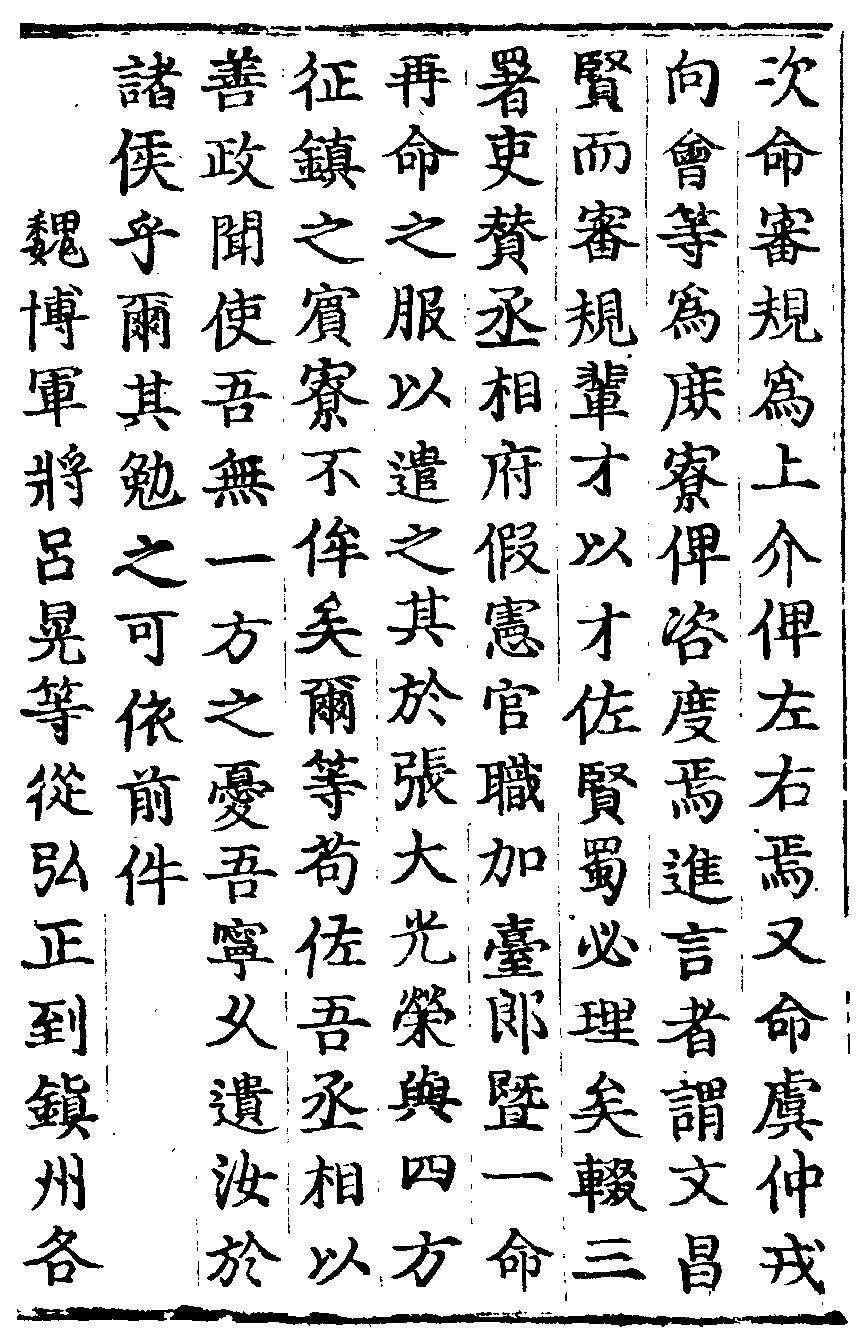 次命審規爲上介俾左右焉又命虞仲戎
向會等爲庶寮俾咨度焉進言者謂文昌
賢而審規輩才以才佐賢蜀必理矣輟三
署吏賛丞相府假憲官職加臺郎暨一命
再命之服以遣之其於張大光榮與四方
征鎮之賓寮不侔矣爾等苟佐吾丞相以
善政聞使吾無一方之憂吾寧久遺汝於
諸侯乎爾其勉之可依前件
魏博軍將呂晃等從弘正到鎮州各